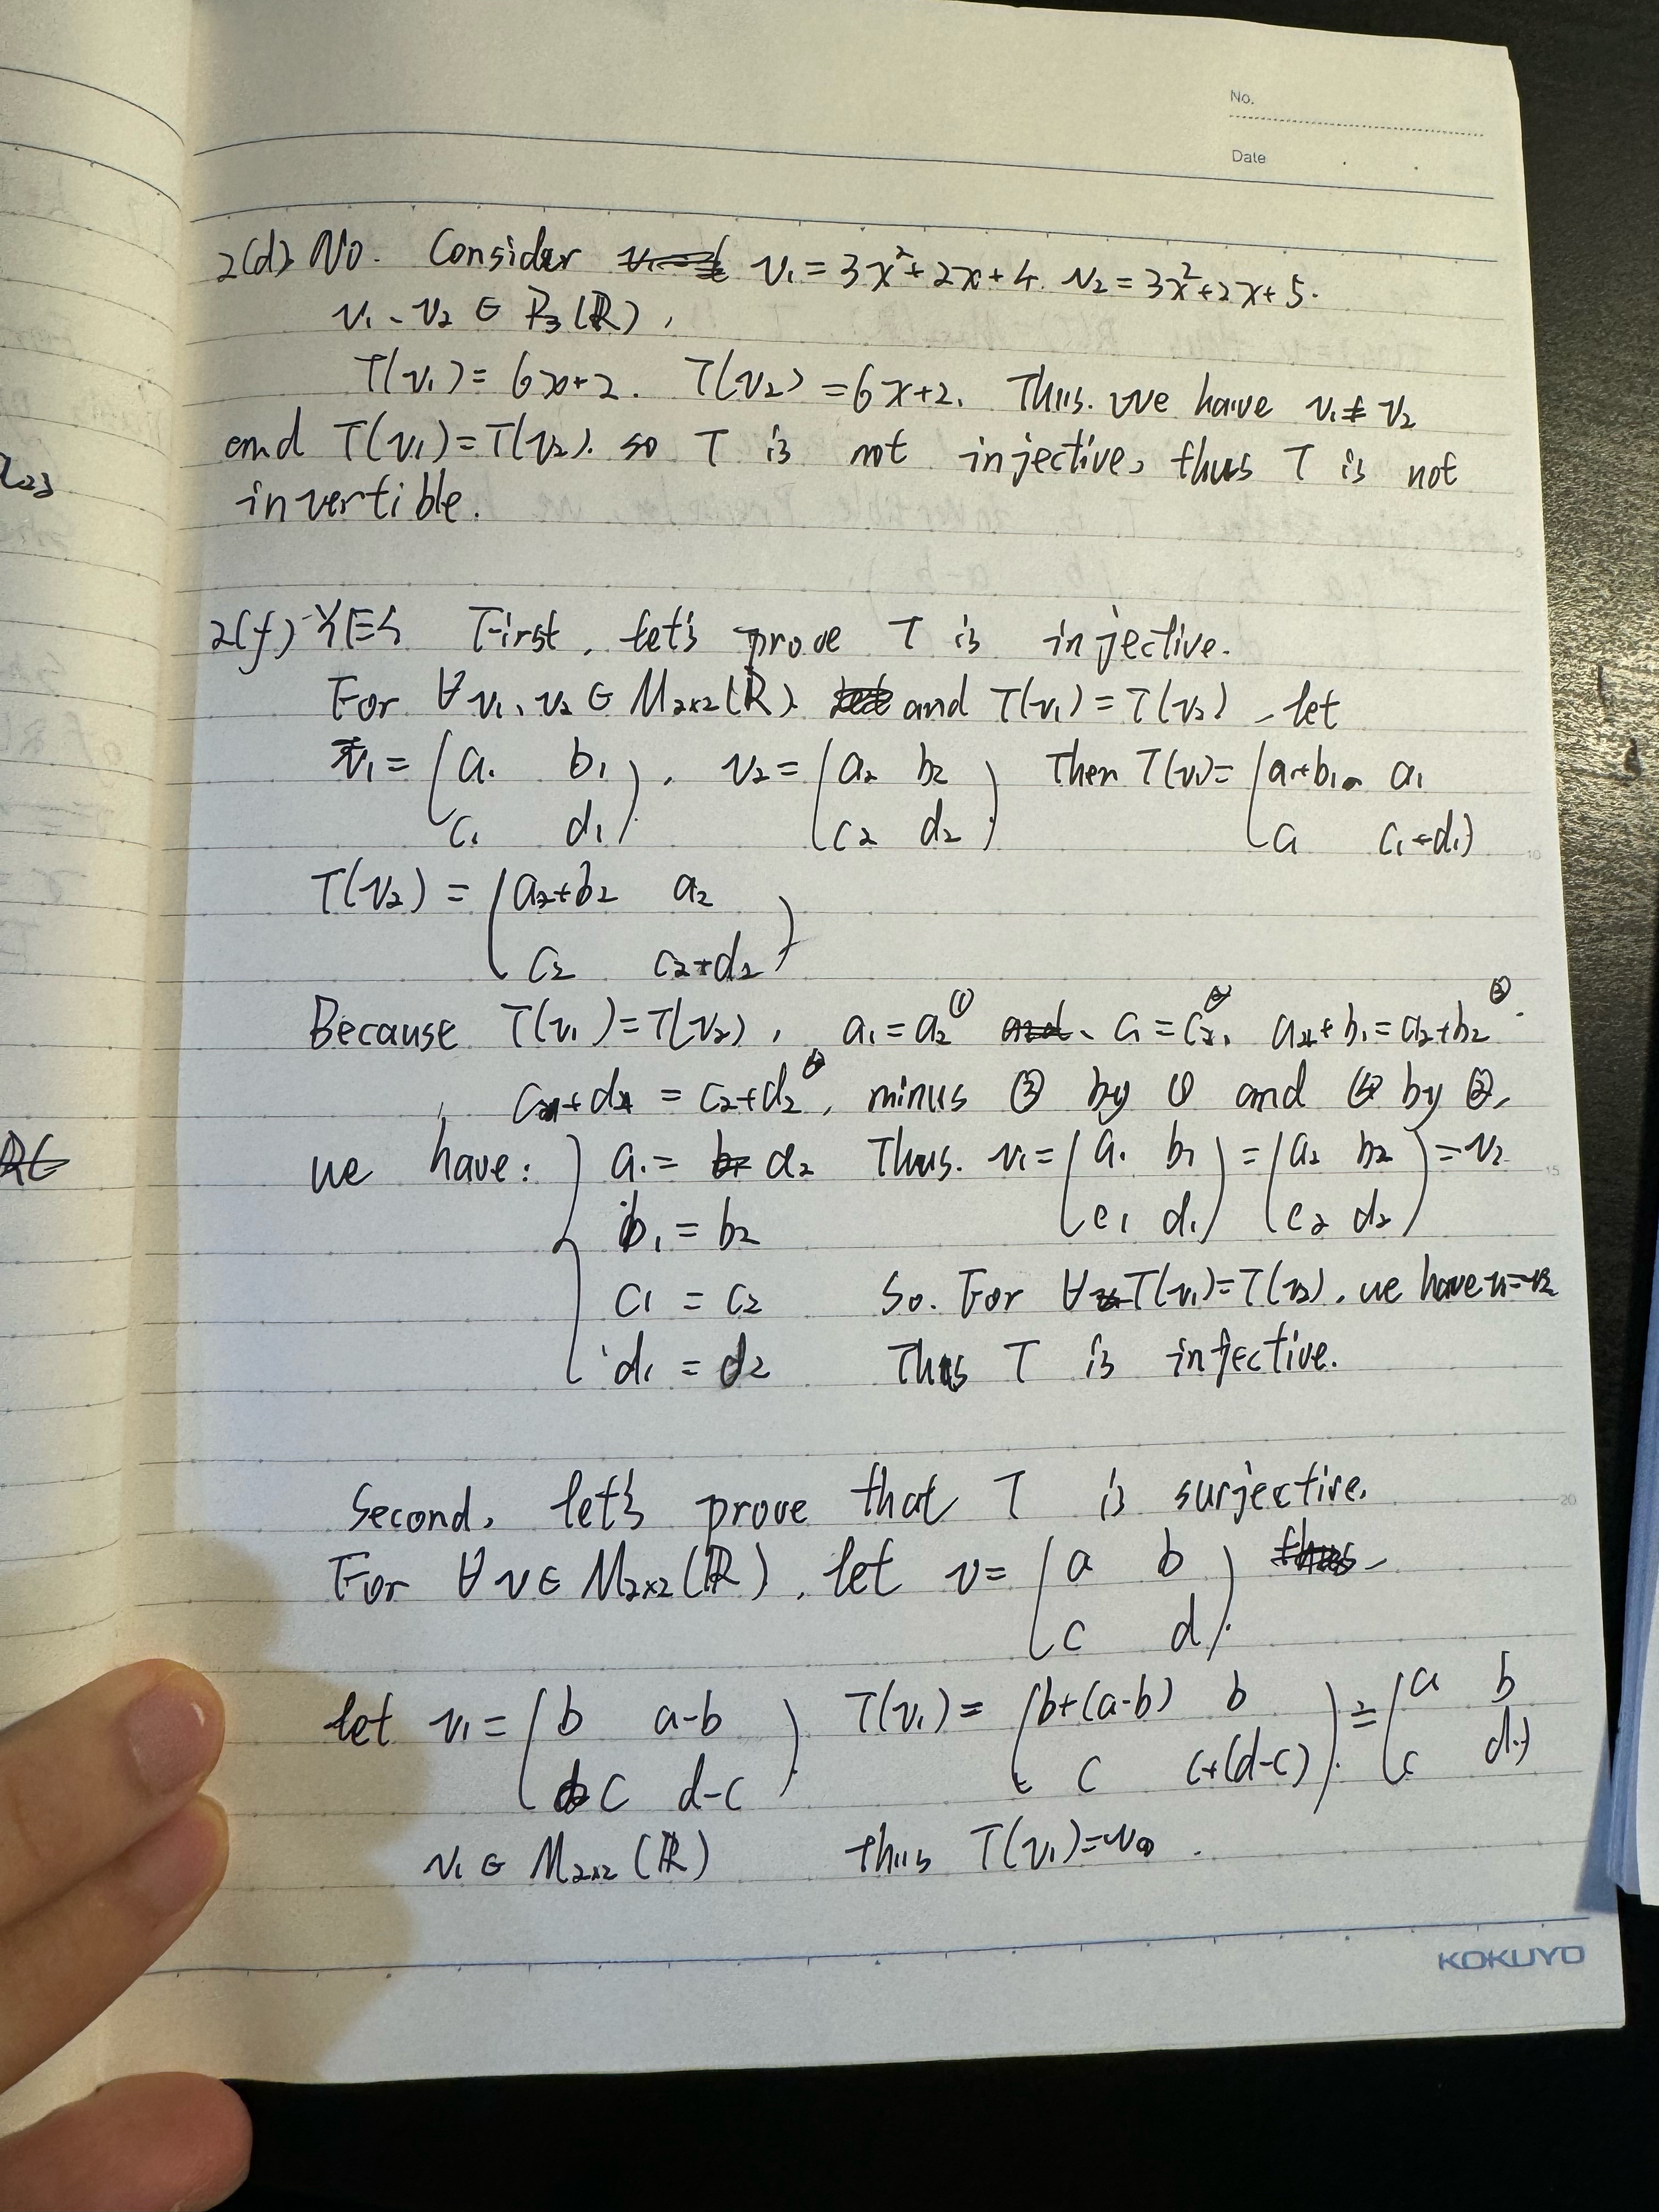 No.
Date
2(d) No. Consider v₁ = 3x²+2x+4. v₂ = 3x²+2x+5.
v₁、v₂ ∈ P₃(ℝ),
T(v₁) = 6x+2. T(v₂) = 6x+2. Thus. we have v₁ ≠ v₂
and T(v₁)=T(v₂). so T is not injective, thus T is not
invertible.
2(f) YES First, let's prove T is injective.
For ∀ v₁、v₂ ∈ M₂ₓ₂(ℝ) and T(v₁) = T(v₂), let
v₁ = (a₁ b₁ , v₂ = (a₂ b₂ ) Then T(v₁) = (a₁+b₁ a₁
c₁ d₁). (c₂ d₂). c₁ c₁+d₁)
T(v₂) = (a₂+b₂ a₂
c₂ c₂+d₂)
Because T(v₁)=T(v₂), a₁=a₂ ① 、c₁=c₂ ②, a₁+b₁=a₂+b₂ ③.
, c₁+d₁ = c₂+d₂ ④, minus ③ by ① and ④ by ②,
we have: { a₁ = a₂ Thus. v₁ = (a₁ b₁) = (a₂ b₂) = v₂
b₁ = b₂ (c₁ d₁) (c₂ d₂)
c₁ = c₂ So. For ∀ T(v₁)=T(v₂), we have v₁=v₂
d₁ = d₂ Thus T is injective.
Second, let's prove that T is surjective.
For ∀ v ∈ M₂ₓ₂(ℝ), let v = (a b
c d).
let v₁ = (b a-b ) T(v₁) = (b+(a-b) b ) = (a b
c d-c). c c+(d-c)). c d)
v₁ ∈ M₂ₓ₂(ℝ) thus T(v₁)=v .
KOKUYO